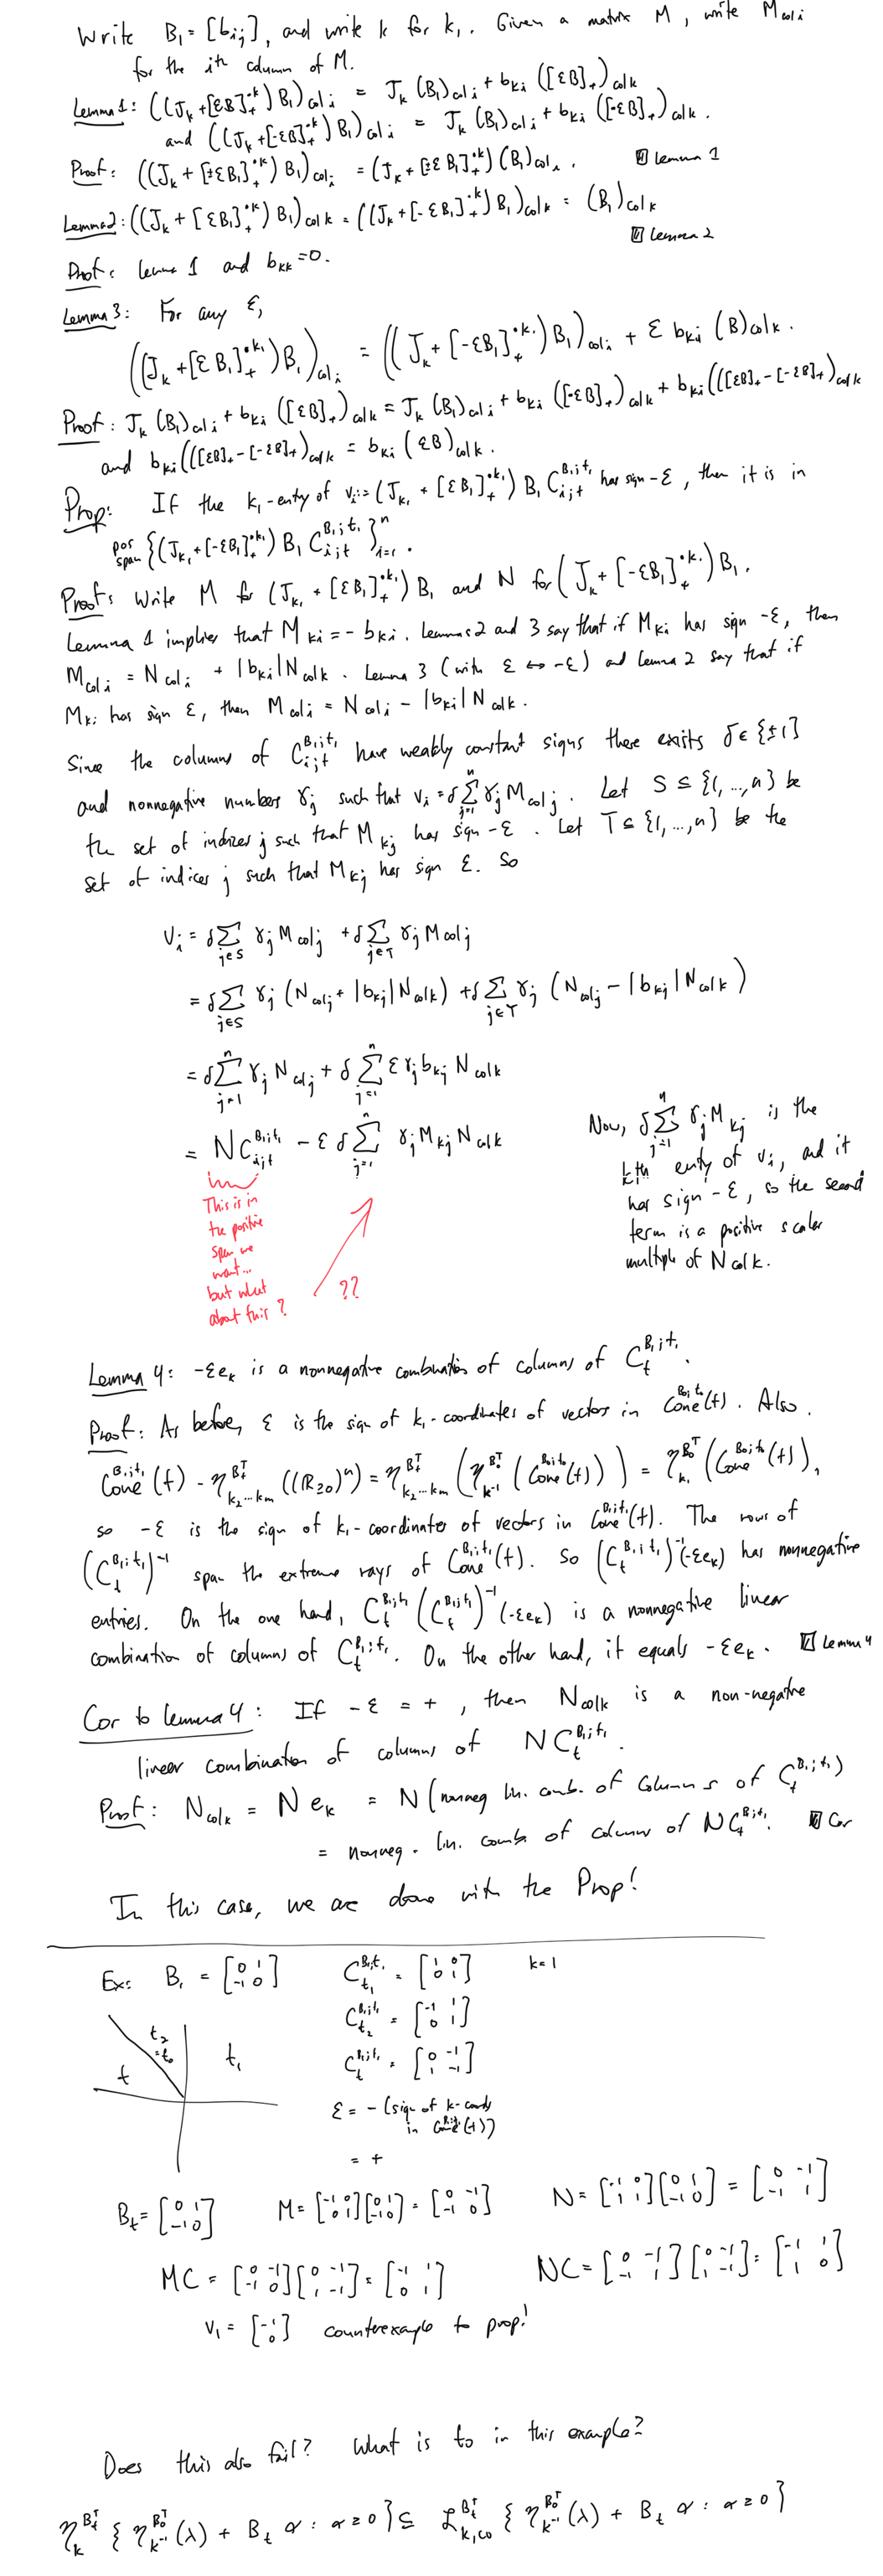 Write B₁ = [b_ij], and write k for k₁. Given a matrix M, write M_col i
for the ith column of M.
Lemma 1: ((J_k + [εB]₊^{•k}) B₁)_col i = J_k (B₁)_col i + b_ki ([εB]₊)_col k
and ((J_k + [-εB]₊^{•k}) B₁)_col i = J_k (B₁)_col i + b_ki ([-εB]₊)_col k.
Proof: ((J_k + [±εB₁]₊^{•k}) B₁)_col i = (J_k + [±εB₁]₊^{•k}) (B₁)_col i. ▨ lemma 1
Lemma 2: ((J_k + [εB₁]₊^{•k}) B₁)_col k = ((J_k + [-εB₁]₊^{•k}) B₁)_col k = (B₁)_col k
▨ lemma 2
Proof: lemma 1 and b_kk = 0.
Lemma 3: For any ε,
((J_k + [εB₁]₊^{•k₁}) B₁)_col i = ((J_k + [-εB₁]₊^{•k₁}) B₁)_col i + ε b_ki (B)_col k.
Proof: J_k (B₁)_col i + b_ki ([εB]₊)_col k = J_k (B₁)_col i + b_ki ([-εB]₊)_col k + b_ki (([εB]₊ - [-εB]₊)_col k
and b_ki (([εB]₊ - [-εB]₊)_col k = b_ki (εB)_col k.
Prop: If the k₁-entry of v_i := (J_k₁ + [εB₁]₊^{•k₁}) B₁ C_{i;t}^{B₁;t₁} has sign -ε, then it is in
pos span {(J_k₁ + [-εB₁]₊^{•k₁}) B₁ C_{i;t}^{B₁;t₁}}_{i=1}^n.
Proof: Write M for (J_k₁ + [εB₁]₊^{•k₁}) B₁ and N for (J_k + [-εB₁]₊^{•k₁}) B₁.
Lemma 1 implies that M_ki = -b_ki. Lemmas 2 and 3 say that if M_ki has sign -ε, then
M_col i = N_col i + |b_ki| N_col k. Lemma 3 (with ε ↔ -ε) and lemma 2 say that if
M_ki has sign ε, then M_col i = N_col i - |b_ki| N_col k.
Since the columns of C_{i;t}^{B₁;t₁} have weakly constant signs there exists δ ∈ {±1}
and nonnegative numbers γ_j such that v_i = δ Σ_{j=1}^n γ_j M_col j. Let S ⊆ {1,...,n} be
the set of indices j such that M_kj has sign -ε. Let T ⊆ {1,...,n} be the
set of indices j such that M_kj has sign ε. So
v_i = δ Σ_{j∈S} γ_j M_col j + δ Σ_{j∈T} γ_j M_col j
= δ Σ_{j∈S} γ_j (N_col j + |b_kj| N_col k) + δ Σ_{j∈T} γ_j (N_col j - |b_kj| N_col k)
= δ Σ_{j=1}^n γ_j N_col j + δ Σ_{j=1}^n ε γ_j b_kj N_col k
= N C_{i;t}^{B₁;t₁} - ε δ Σ_{j=1}^n γ_j M_kj N_col k
Now, δ Σ_{j=1}^n γ_j M_kj is the
kth entry of v_i, and it
has sign -ε, so the second
term is a positive scalar
multiple of N_col k.
This is in
the positive
span we
want...
but what
about this?
??
Lemma 4: -εe_k is a nonnegative combination of columns of C_t^{B₁;t₁}.
Proof: As before, ε is the sign of k₁-coordinates of vectors in Cone^{B₀;t₀}(t). Also,
Cone^{B₁;t₁}(t) = η_{k₂...k_m}^{B_t^T} ((R≥0)^n) = η_{k₂...k_m}^{B_t^T} (η_{k^{-1}}^{B_0^T} (Cone^{B₀;t₀}(t))) = η_{k₁}^{B_0^T} (Cone^{B₀;t₀}(t)),
so -ε is the sign of k₁-coordinates of vectors in Cone^{B₁;t₁}(t). The rows of
(C_t^{B₁;t₁})^{-1} span the extreme rays of Cone^{B₁;t₁}(t). So (C_t^{B₁;t₁})^{-1} (-εe_k) has nonnegative
entries. On the one hand, C_t^{B₁;t₁} (C_t^{B₁;t₁})^{-1} (-εe_k) is a nonnegative linear
combination of columns of C_t^{B₁;t₁}. On the other hand, it equals -εe_k. ▨ Lemma 4
Cor to lemma 4: If -ε = +, then N_col k is a non-negative
linear combination of columns of N C_t^{B₁;t₁}.
Proof: N_col k = N e_k = N (nonneg lin. comb. of columns of C_t^{B₁;t₁})
= nonneg. lin. comb. of columns of N C_t^{B₁;t₁}. ▨ Cor
In this case, we are done with the Prop!
Ex: B₁ = [0 1; -1 0] C_{t₁}^{B₁;t₁} = [1 0; 0 1] k=1
C_{t₂}^{B₁;t₁} = [-1 1; 0 1]
C_t^{B₁;t₁} = [0 -1; 1 -1]
t₂
=t₀
t₁
t
ε = - (sign of k-coords
in Cone^{B₁;t₁}(t))
= +
B_t = [0 1; -1 0] M = [-1 0; 0 1][0 1; -1 0] = [0 -1; -1 0] N = [-1 0; 1 1][0 1; -1 0] = [0 -1; -1 1]
MC = [0 -1; -1 0][0 -1; 1 -1] = [-1 1; 0 1] NC = [0 -1; -1 1][0 -1; 1 -1] = [-1 1; 1 0]
v₁ = [-1; 0] counterexample to prop!
Does this also fail? What is t₀ in this example?
η_k^{B_t^T} {η_{k^{-1}}^{B_0^T}(λ) + B_t α : α ≥ 0} ⊆ L_{k,co}^{B_t^T} {η_{k^{-1}}^{B_0^T}(λ) + B_t α : α ≥ 0}